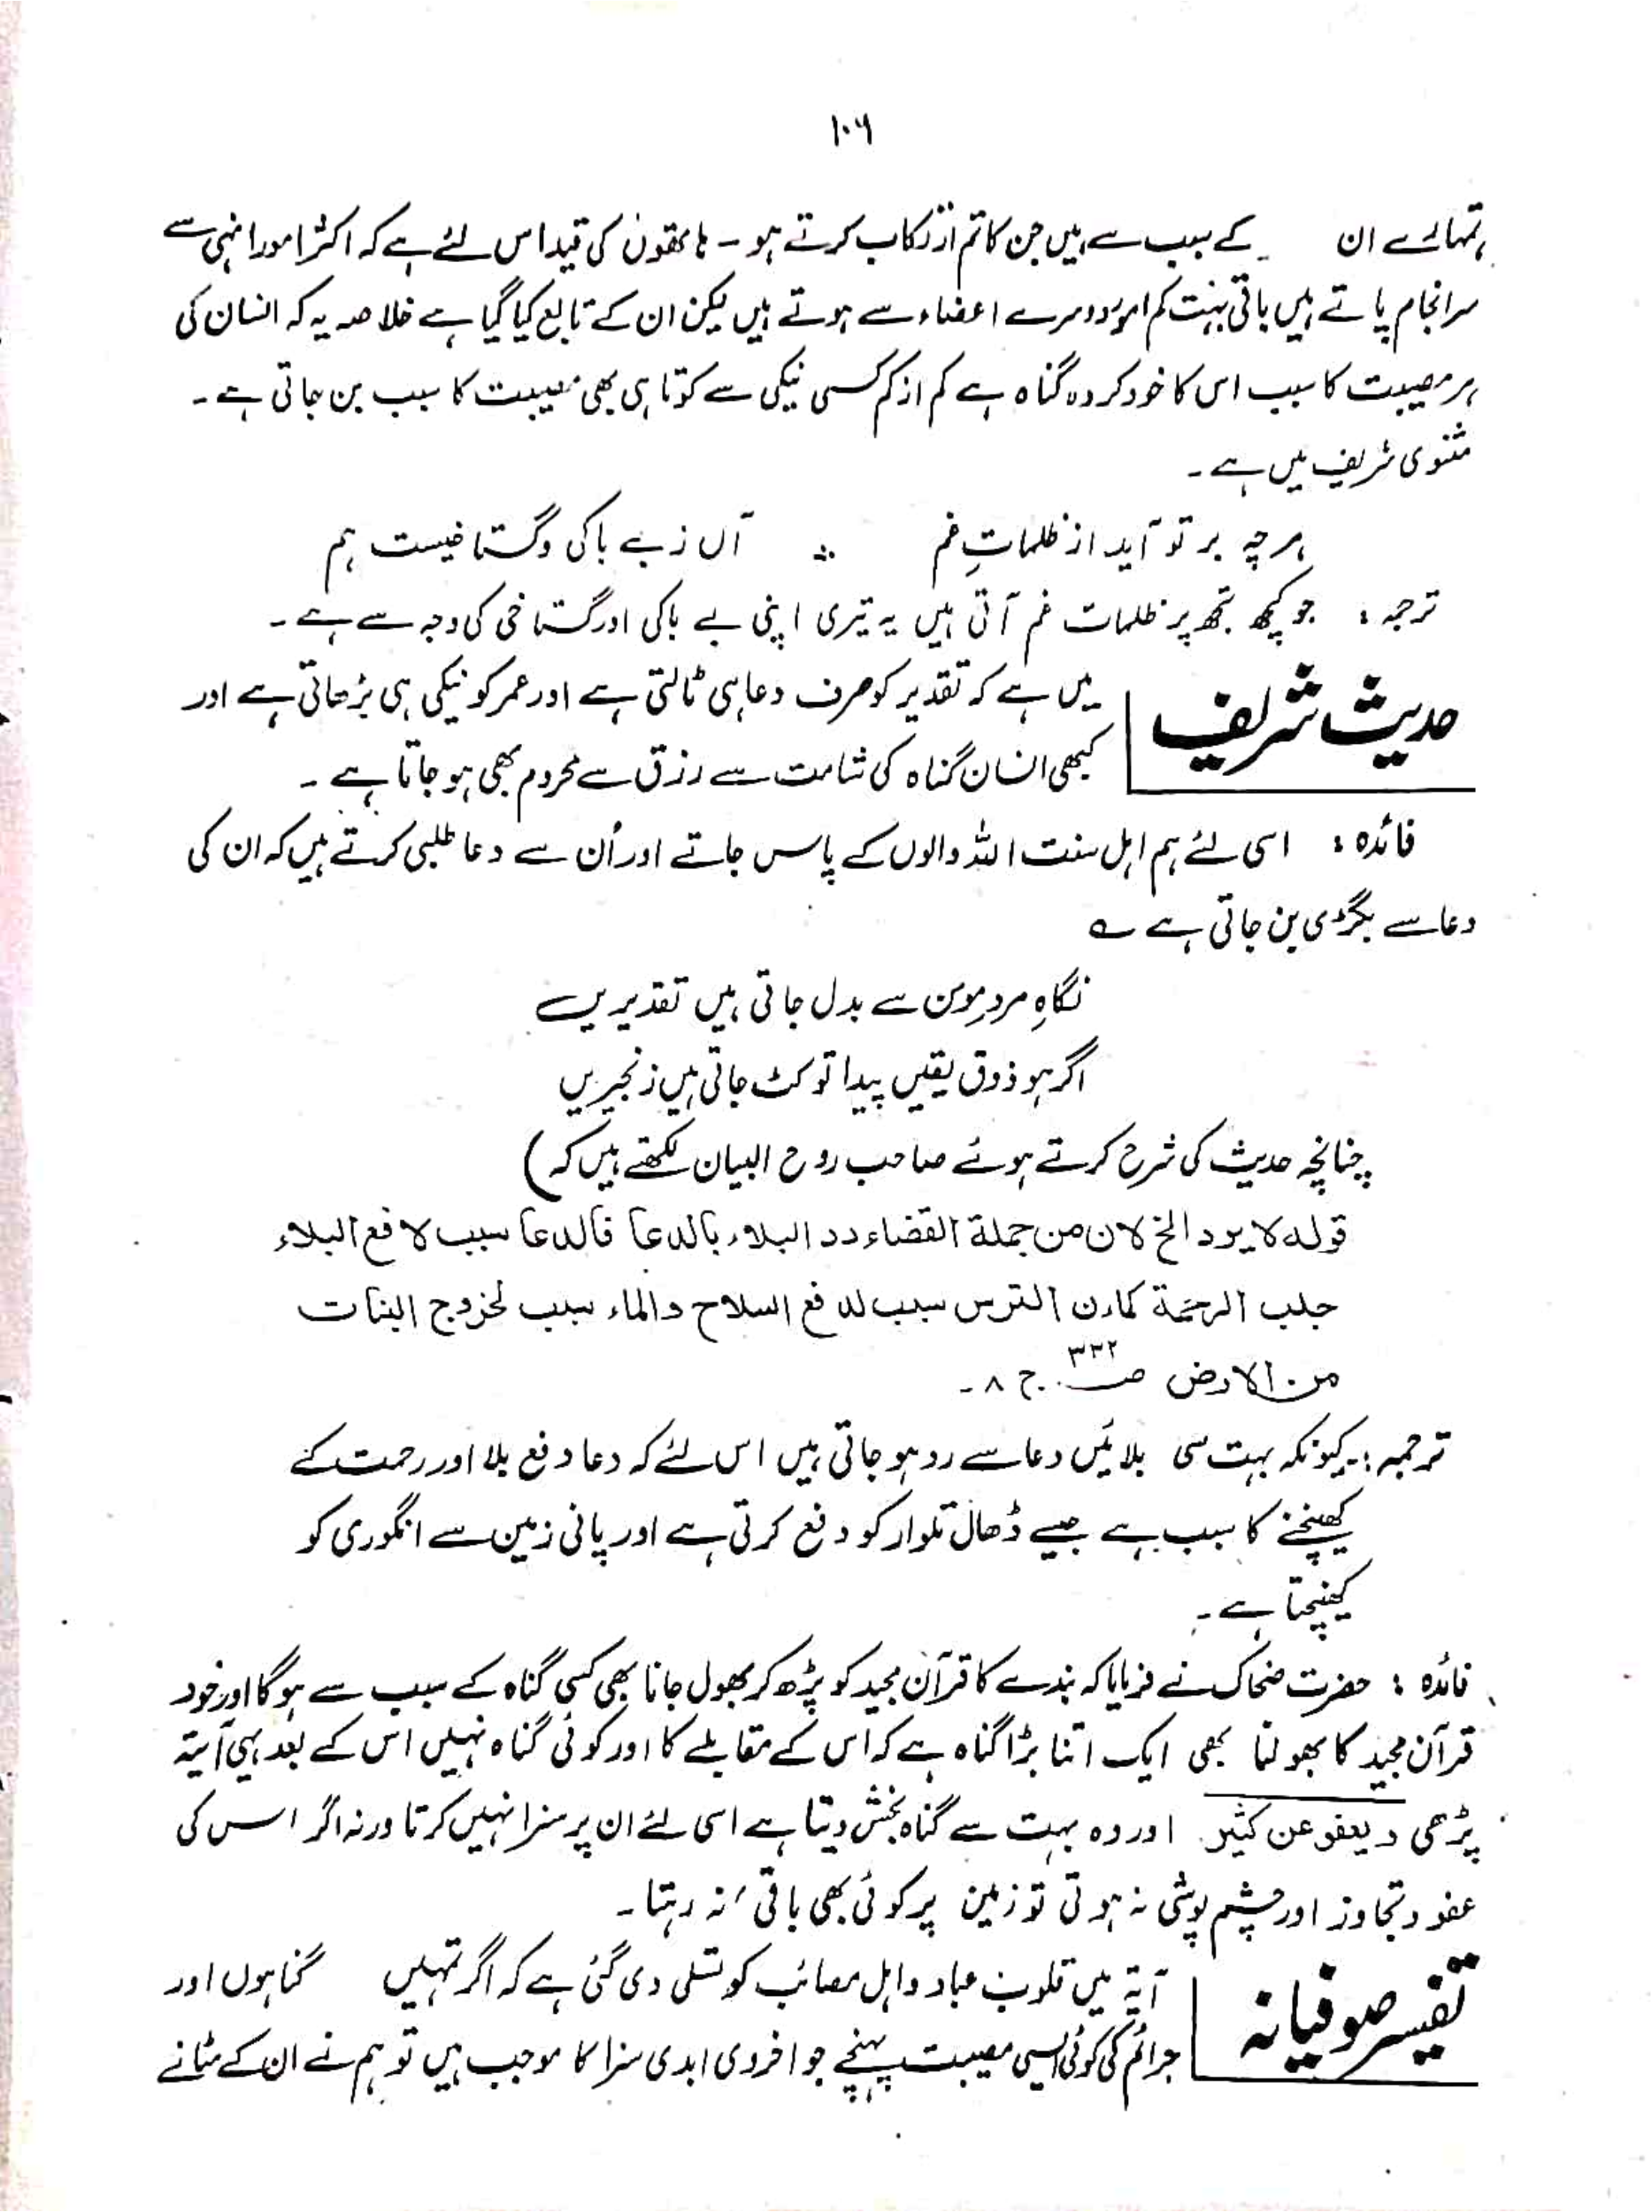 ۱۰۶
تمہارے ان کے سبب سے ہیں جن کا تم ارتکاب کرتے ہو ۔ ہاتھوں کی قید اس لئے ہے کہ اکثر امور انہی سے
سرانجام پاتے ہیں باقی بہت کم امور دوسرے اعضاء سے ہوتے ہیں لیکن ان کے تابع کیا گیا ہے خلاصہ یہ کہ انسان کی
ہر مصیبت کا سبب اس کا خود کردہ گناہ ہے کم از کم کسی نیکی سے کوتاہی بھی مصیبت کا سبب بن جاتی ہے ۔
مثنوی شریف میں ہے ۔
ہر چہ بر تو آید از ظلماتِ غم ∴ آں ز بے باکی و گستاخیست ہم
ترجمہ : جو کچھ تجھ پر ظلمات غم آتی ہیں یہ تیری اپنی بے باکی اور گستاخی کی وجہ سے ہے ۔
حدیث شریف میں ہے کہ تقدیر کو صرف دعا ہی ٹالتی ہے اور عمر کو نیکی ہی بڑھاتی ہے اور
کبھی انسان گناہ کی شامت سے رزق سے محروم بھی ہو جاتا ہے ۔
فائدہ : اسی لئے ہم اہل سنت اللہ والوں کے پاس جاتے اور اُن سے دعا طلبی کرتے ہیں کہ ان کی
دعا سے بگڑی بن جاتی ہے ؎
نگاہِ مردِ مومن سے بدل جاتی ہیں تقدیریں
اگر ہو ذوق یقیں پیدا تو کٹ جاتی ہیں زنجیریں
چنانچہ حدیث کی شرح کرتے ہوئے صاحب روح البیان لکھتے ہیں کہ )
قوله لا يرد الخ لان من جملة القضاء رد البلاء بالدعا فالدعا سبب لافع البلاء
جلب الرحمة كما ان الترس سبب لدفع السلاح والماء سبب لخروج البنات
من الارض ص ۳۳۲ ج ۸ ۔
ترجمہ : کیونکہ بہت سی بلائیں دعا سے رد ہو جاتی ہیں اس لئے کہ دعا دفع بلا اور رحمت کے
کھینچنے کا سبب ہے جیسے ڈھال تلوار کو دفع کرتی ہے اور پانی زمین سے انگوری کو
کھینچتا ہے ۔
فائدہ : حضرت ضحاک نے فرمایا کہ بندے کا قرآن مجید کو پڑھ کر بھول جانا بھی کسی گناہ کے سبب سے ہوگا اور خود
قرآن مجید کا بھولنا بھی ایک اتنا بڑا گناہ ہے کہ اس کے مقابلے کا اور کوئی گناہ نہیں اس کے بعد یہی آیتہ
پڑھی ویعفو عن کثیر اور وہ بہت سے گناہ بخش دیتا ہے اسی لئے ان پر سزا نہیں کرتا ورنہ اگر اس کی
عفو و تجاوز اور چشم پوشی نہ ہوتی تو زمین پر کوئی بھی باقی نہ رہتا ۔
تفسیر صوفیانہ آیۃ میں قلوب عباد و اہل مصائب کو تسلی دی گئی ہے کہ اگر تمہیں گناہوں اور
جرائم کی کوئی ایسی مصیبت پہنچے جو اخروی ابدی سزا کا موجب ہیں تو ہم نے ان کے مٹانے